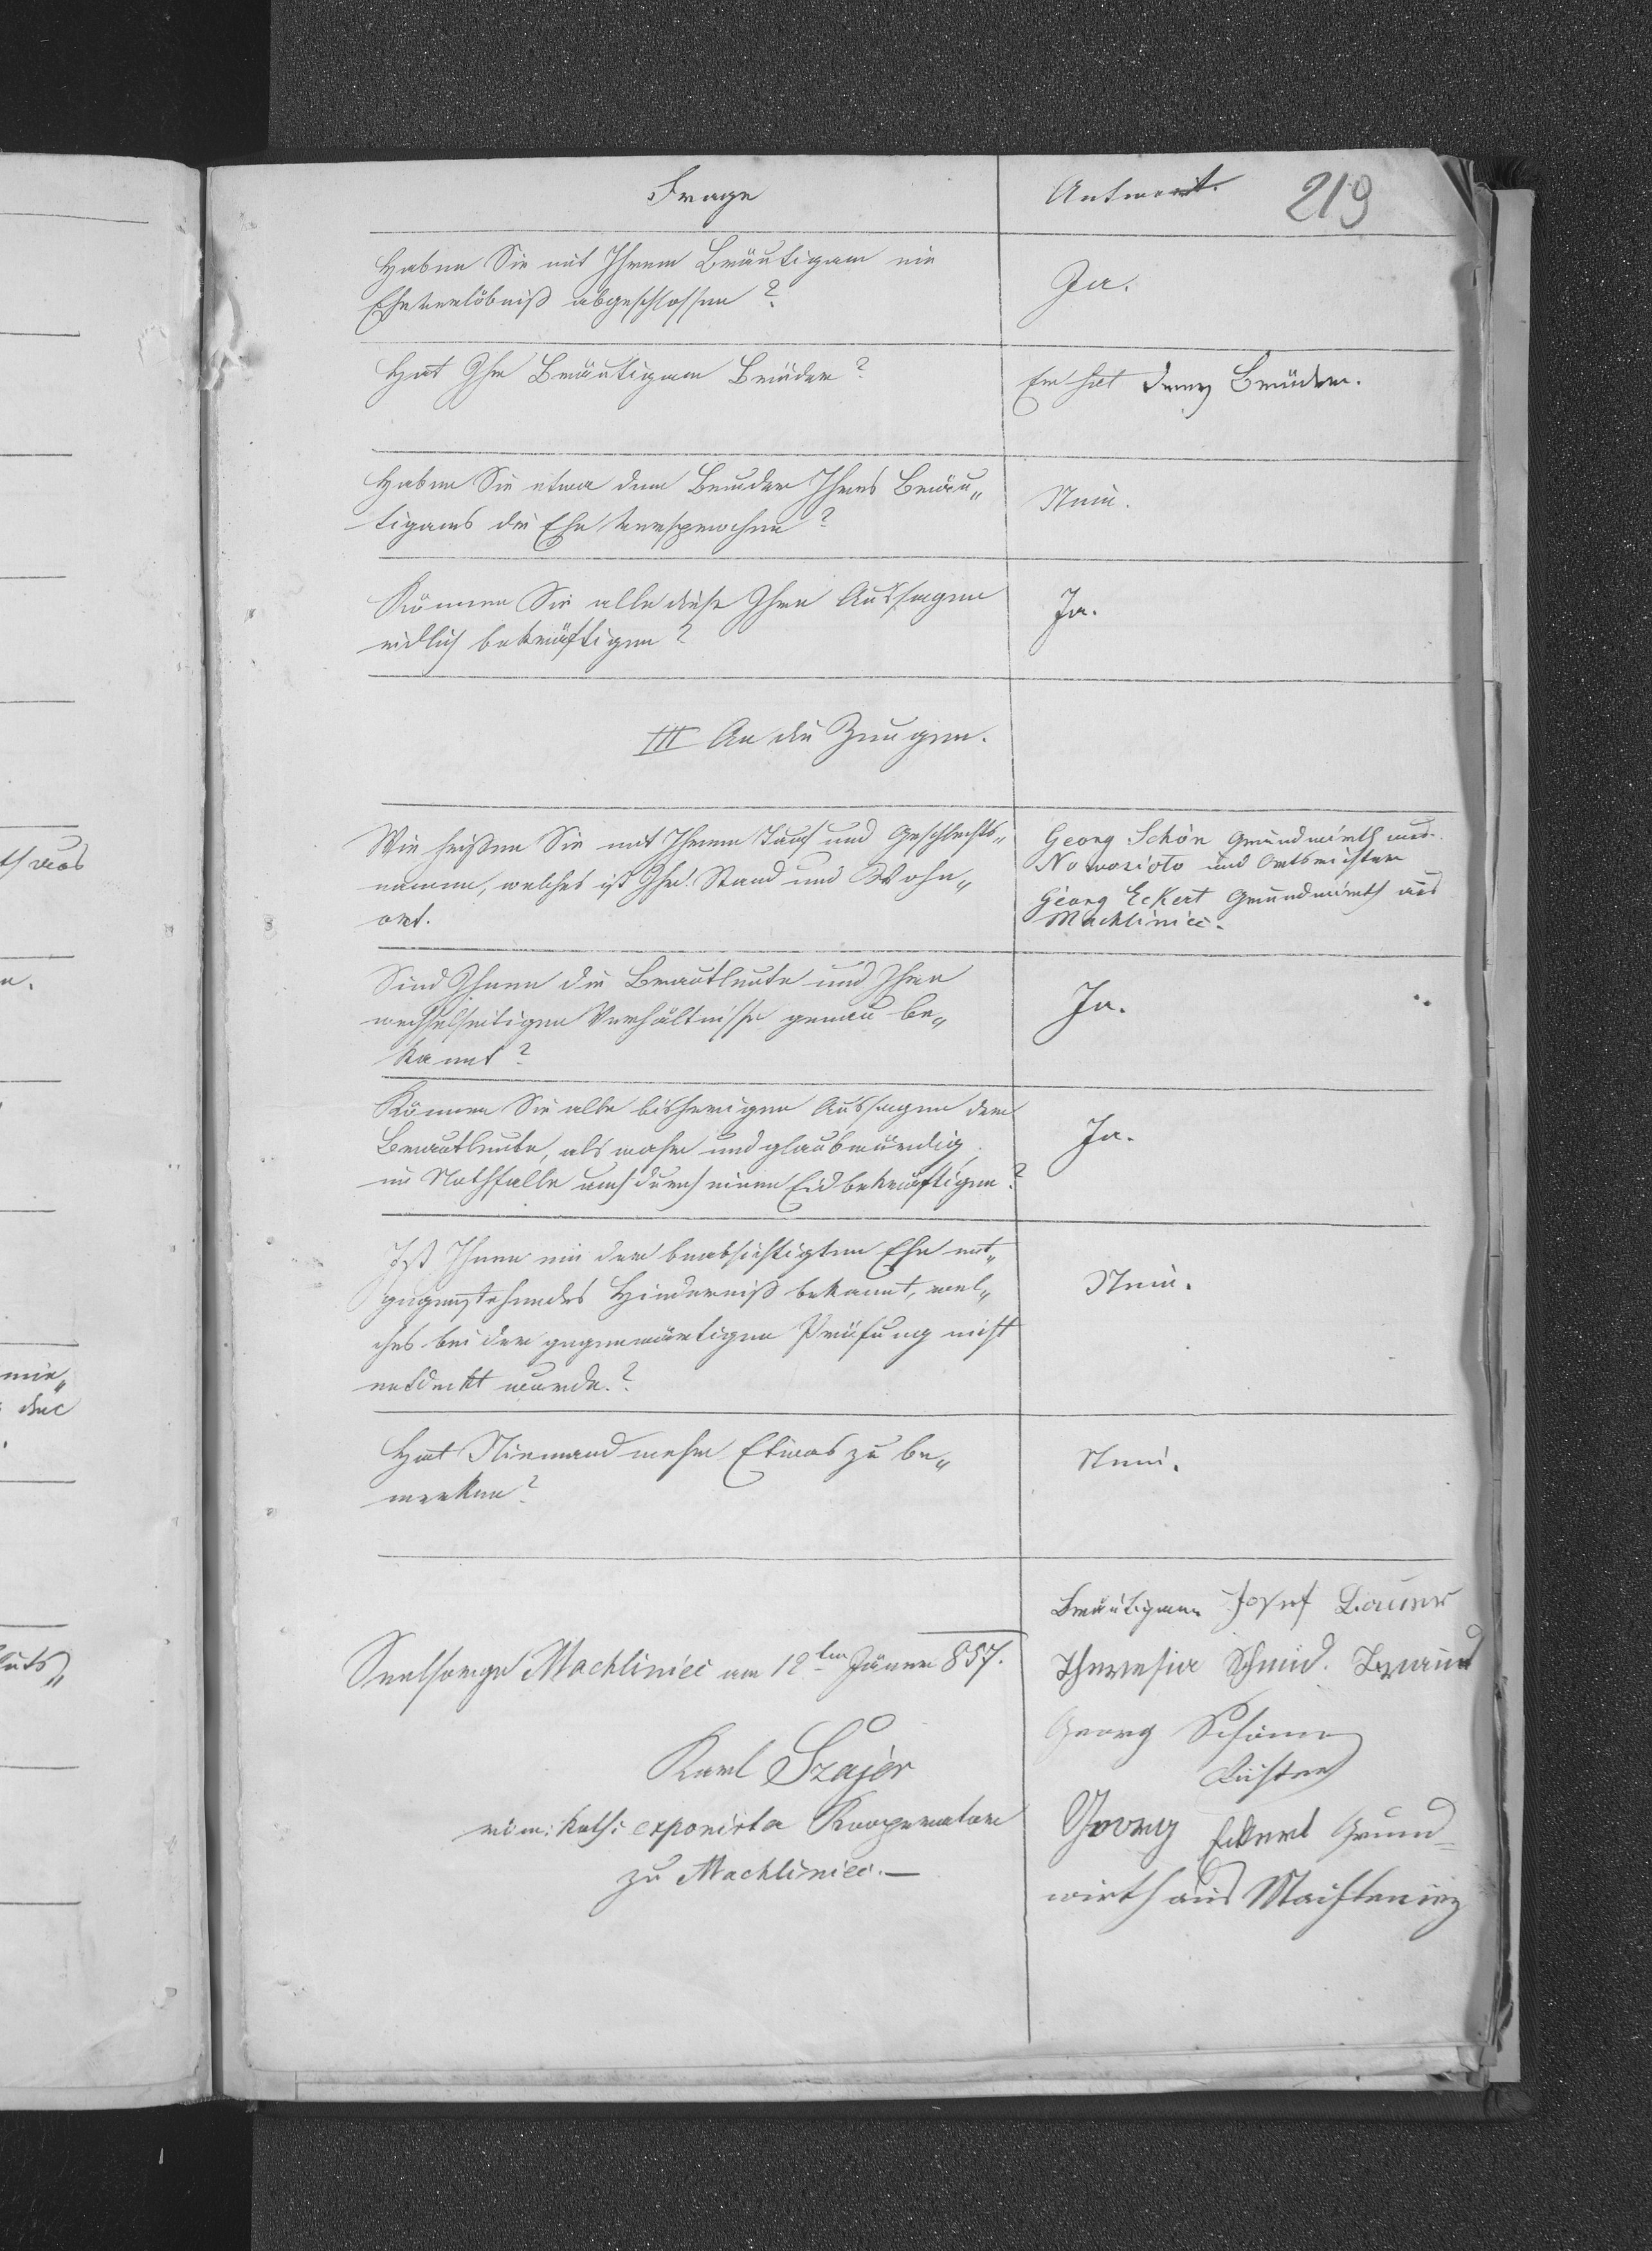 219
Frage
Antwort.
Haben Sie mit Ihrem Bräutigam ein
Eheverlöbniß abgeschlossen?
Ja.
Hat Ihr Bräutigam Brüder?
Er hat drey Brüder.
Haben Sie etwa dem Bruder Ihres Bräu„
tigams die Ehe versprochen?
Nein.
Können Sie alle diese Ihre Aussagen
eidlich bekräftigen?
Ja.
III An die Zeugen.
Wie heißen Sie mit Ihrem Tauf und Geschlechts„
namen, welches ist Ihr Stand und Wohn„
ort.
Georg Schön Grundwirth aus
Nowosioło und Ortsrichter
Georg Eckert Grundwirth aus
Machliniec.
Sind Ihnen die Brautleute und Ihre
wechselseitigen Verhältnisse genau be„
kannt?
Ja.
Können Sie alle bisherigen Aussagen der
Brautleute, als wahr und glaubwürdig,
im Nothfalle auch durch einen Eid bekräftigen?
Ja.
Ist Ihnen ein der beabsichtigten Ehe ent„
gegenstehendes Hinderniß bekannt, wel„
ches bei der gegenwärtigen Prüfung nicht
entdeckt wurde.?
Nein.
Hat Niemand mehr Etwas zu be„
merken?
Nein.
Bräutigam Josef Bauer
Seelsorge Machliniec am 12ten Jäner 857.
Theresia Schmid. Braut
Georg Schön
Richter
Karl Szajer
röm: kath: exponirter Kooperator
zu Machliniec.—
Georg Eckert Grund=
wirth aus